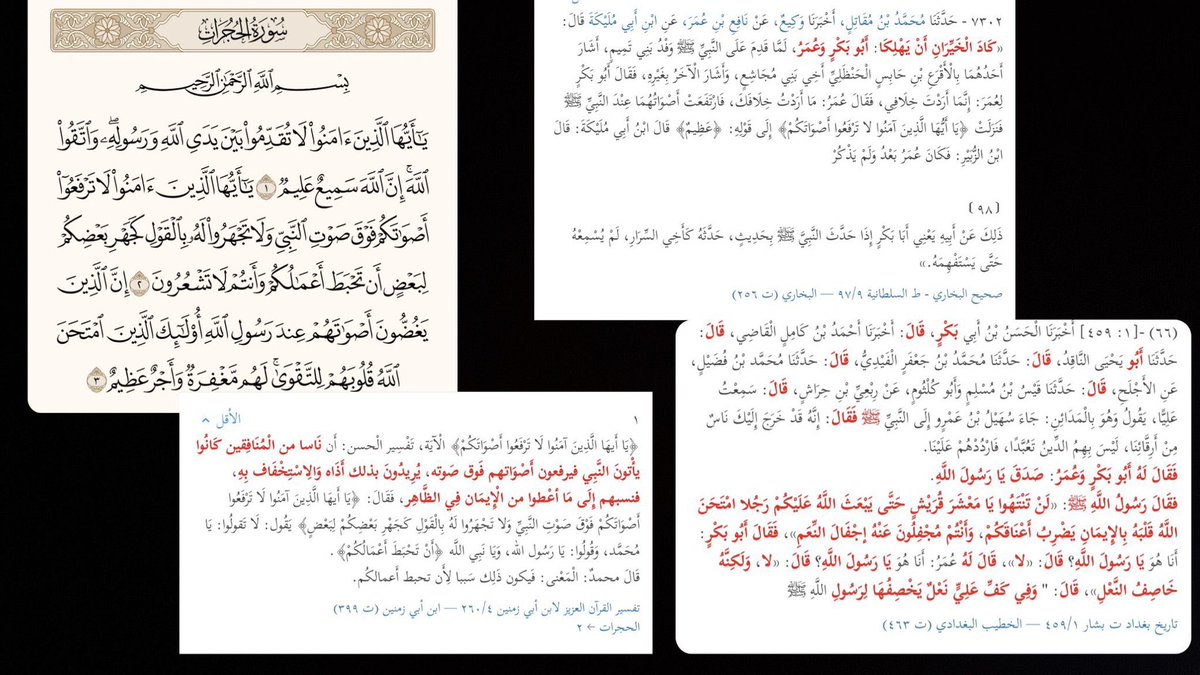 سُورَةُ الحُجُرَاتِ
بِسْمِ ٱللَّهِ ٱلرَّحْمَٰنِ ٱلرَّحِيمِ
يَٰٓأَيُّهَا ٱلَّذِينَ ءَامَنُوا۟ لَا تُقَدِّمُوا۟ بَيْنَ يَدَىِ ٱللَّهِ وَرَسُولِهِۦ ۖ وَٱتَّقُوا۟
ٱللَّهَ ۚ إِنَّ ٱللَّهَ سَمِيعٌ عَلِيمٌ ١ يَٰٓأَيُّهَا ٱلَّذِينَ ءَامَنُوا۟ لَا تَرْفَعُوٓا۟
أَصْوَٰتَكُمْ فَوْقَ صَوْتِ ٱلنَّبِىِّ وَلَا تَجْهَرُوا۟ لَهُۥ بِٱلْقَوْلِ كَجَهْرِ بَعْضِكُمْ
لِبَعْضٍ أَن تَحْبَطَ أَعْمَٰلُكُمْ وَأَنتُمْ لَا تَشْعُرُونَ ٢ إِنَّ ٱلَّذِينَ
يَغُضُّونَ أَصْوَٰتَهُمْ عِندَ رَسُولِ ٱللَّهِ أُو۟لَٰٓئِكَ ٱلَّذِينَ ٱمْتَحَنَ
ٱللَّهُ قُلُوبَهُمْ لِلتَّقْوَىٰ ۚ لَهُم مَّغْفِرَةٌ وَأَجْرٌ عَظِيمٌ ٣
٧٣٠٢ - حَدَّثَنَا مُحَمَّدُ بْنُ مُقَاتِلٍ، أَخْبَرَنَا وَكِيعٌ، عَنْ نَافِعِ بْنِ عُمَرَ، عَنِ ابْنِ أَبِي مُلَيْكَةَ قَالَ:
«كَادَ الْخَيِّرَانِ أَنْ يَهْلِكَا: أَبُو بَكْرٍ وَعُمَرُ، لَمَّا قَدِمَ عَلَى النَّبِيِّ ﷺ وَفْدُ بَنِي تَمِيمٍ، أَشَارَ
أَحَدُهُمَا بِالْأَقْرَعِ بْنِ حَابِسٍ الْحَنْظَلِيِّ أَخِي بَنِي مُجَاشِعٍ، وَأَشَارَ الْآخَرُ بِغَيْرِهِ، فَقَالَ أَبُو بَكْرٍ
لِعُمَرَ: إِنَّمَا أَرَدْتَ خِلَافِي، فَقَالَ عُمَرُ: مَا أَرَدْتُ خِلَافَكَ، فَارْتَفَعَتْ أَصْوَاتُهُمَا عِنْدَ النَّبِيِّ ﷺ
فَنَزَلَتْ ﴿يَا أَيُّهَا الَّذِينَ آمَنُوا لَا تَرْفَعُوا أَصْوَاتَكُمْ﴾ إِلَى قَوْلِهِ: ﴿عَظِيمٌ﴾ قَالَ ابْنُ أَبِي مُلَيْكَةَ: قَالَ
ابْنُ الزُّبَيْرِ: فَكَانَ عُمَرُ بَعْدُ وَلَمْ يَذْكُرْ
(٩٨)
ذَلِكَ عَنْ أَبِيهِ يَعْنِي أَبَا بَكْرٍ إِذَا حَدَّثَ النَّبِيَّ ﷺ بِحَدِيثٍ، حَدَّثَهُ كَأَخِي السِّرَارِ، لَمْ يُسْمِعْهُ
حَتَّى يَسْتَفْهِمَهُ.»
صحيح البخاري - ط السلطانية ٩٧/٩ — البخاري (ت ٢٥٦)
١
الأقل
﴿يَا أَيهَا الَّذِينَ آمَنُوا لَا تَرْفَعُوا أَصْوَاتَكُمْ﴾ الْآيَة، تَفْسِير الْحسن: أَن نَاسا من الْمُنَافِقين كَانُوا
يأْتونَ النَّبِي فيرفعون أَصْوَاتهم فَوق صَوته، يُرِيدُونَ بذلك أَذَاه وَالِاسْتِخْفَاف بِهِ،
فنسبهم إِلَى مَا أعْطوا من الْإِيمَان فِي الظَّاهِر، فَقَالَ: ﴿يَا أَيهَا الَّذِينَ آمَنُوا لَا تَرْفَعُوا
أَصْوَاتَكُمْ فَوْقَ صَوْتِ النَّبِيِّ وَلا تَجْهَرُوا لَهُ بِالْقَوْلِ كَجَهْرِ بَعْضِكُمْ لِبَعْضٍ﴾ يَقُول: لَا تَقولُوا: يَا
مُحَمَّد، وَقُولُوا: يَا رَسُول الله، وَيَا نَبِي الله ﴿أَنْ تَحْبَطَ أَعْمَالُكُمْ﴾.
قَالَ محمدٌ: الْمَعْنى: فَيكون ذَلِك سَببا لِأَن تحبط أَعمالكُم.
تفسير القرآن العزيز لابن أبي زمنين ٢٦٠/٤ — ابن أبي زمنين (ت ٣٩٩)
الحجرات ← ٢
(٦٦) -[١: ٤٥٩] أَخْبَرَنَا الْحَسَنُ بْنُ أَبِي بَكْرٍ، قَالَ: أَخْبَرَنَا أَحْمَدُ بْنُ كَامِلٍ الْقَاضِي، قَالَ:
حَدَّثَنَا أَبُو يَحْيَى النَّاقِدُ، قَالَ: حَدَّثَنَا مُحَمَّدُ بْنُ جَعْفَرٍ الْفَيْدِيُّ، قَالَ: حَدَّثَنَا مُحَمَّد بْنُ فُضَيْلٍ،
عَنِ الأَجْلَحِ، قَالَ: حَدَّثَنَا قَيْسُ بْنُ مُسْلِمٍ وَأَبُو كُلْثُومٍ، عَنْ رِبْعِيِّ بْنِ حِرَاشٍ، قَالَ: سَمِعْتُ
عَلِيًّا، يَقُولُ وَهُوَ بِالْمَدَائِنِ: جَاءَ سُهَيْلُ بْنُ عَمْرٍو إِلَى النَّبِيِّ ﷺ فَقَالَ: إِنَّهُ قَدْ خَرَجَ إِلَيْكَ نَاسٌ
مِنْ أَرِقَّائِنَا، لَيْسَ بِهِمُ الدِّينُ تَعَبُّدًا، فَارْدُدْهُمْ عَلَيْنَا.
فَقَالَ لَهُ أَبُو بَكْرٍ وَعُمَرُ: صَدَقَ يَا رَسُولَ اللَّهِ.
فقَالَ رَسُولُ اللَّهِ ﷺ: «لَنْ تَنْتَهُوا يَا مَعْشَرَ قُرَيْشٍ حَتَّى يَبْعَثَ اللَّهُ عَلَيْكُمْ رَجُلا امْتَحَنَ
اللَّهُ قَلْبَهُ بِالإِيمَانِ يَضْرِبُ أَعْنَاقَكُمْ، وَأَنْتُمْ مُجْفِلُونَ عَنْهُ إِجْفَالَ النَّعَمِ»، فَقَالَ أَبُو بَكْرٍ:
أَنَا هُوَ يَا رَسُولَ اللَّهِ؟ قَالَ: «لا»، قَالَ لَهُ عُمَرُ: أَنَا هُوَ يَا رَسُولَ اللَّهِ؟ قَالَ: «لا، وَلَكِنَّهُ
خَاصِفُ النَّعْلِ»، قَالَ: " وَفِي كَفِّ عَلِيٍّ نَعْلٌ يَخْصِفُهَا لِرَسُولِ اللَّهِ ﷺ
تاريخ بغداد ت بشار ٤٥٩/١ — الخطيب البغدادي (ت ٤٦٣)